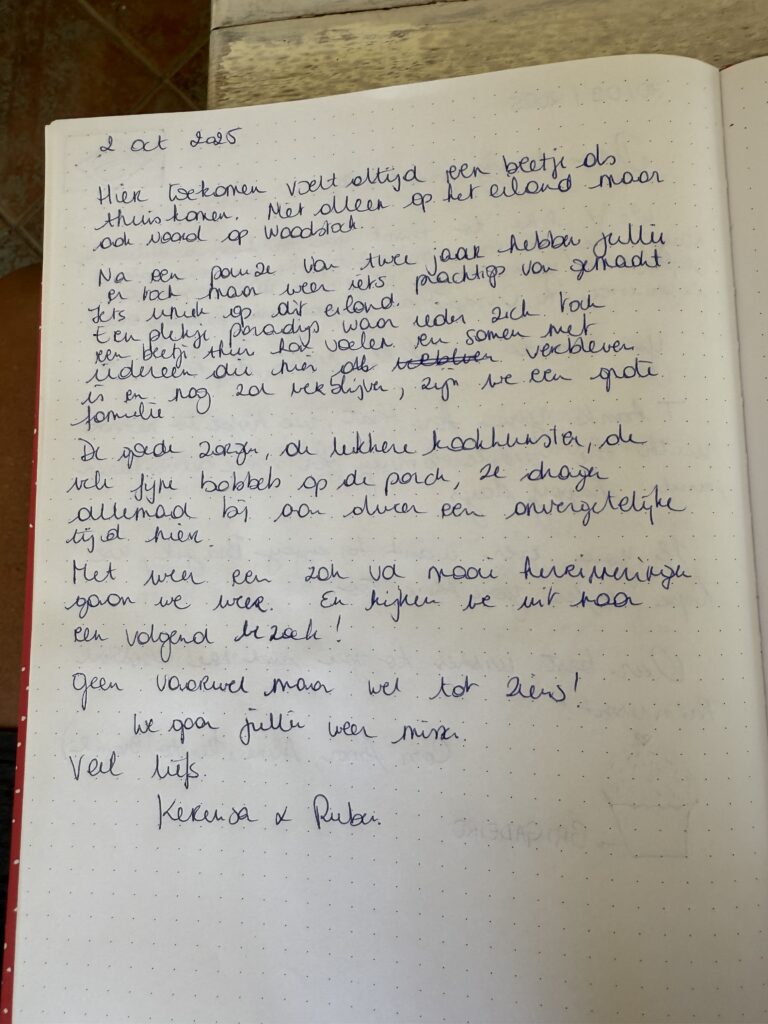 2 oct 2025
Hier toekomen voelt altijd een beetje als
thuiskomen. Niet alleen op het eiland maar
ook vooral op Woodstock.
Na een pauze van twee jaar hebben jullie
er toch maar weer iets prachtigs van gemaakt.
Iets uniek op dit eiland.
Een plekje paradijs waar ieder zich toch
een beetje thuis kan voelen en samen met
iedereen die hier verbleven
is en nog zal verblijven, zijn we een grote
familie
De goede zorgen, de lekkere kookkunsten, de
vele fijne babbels op de porch, ze dragen
allemaal bij aan alweer een onvergetelijke
tijd hier.
Met weer een zak vol mooie herinneringen
gaan we weer. En kijken we uit naar
een volgend bezoek!
Geen vaarwel maar wel tot ziens!
We gaan jullie weer missen.
Veel liefs.
Kerensa & Ruben.